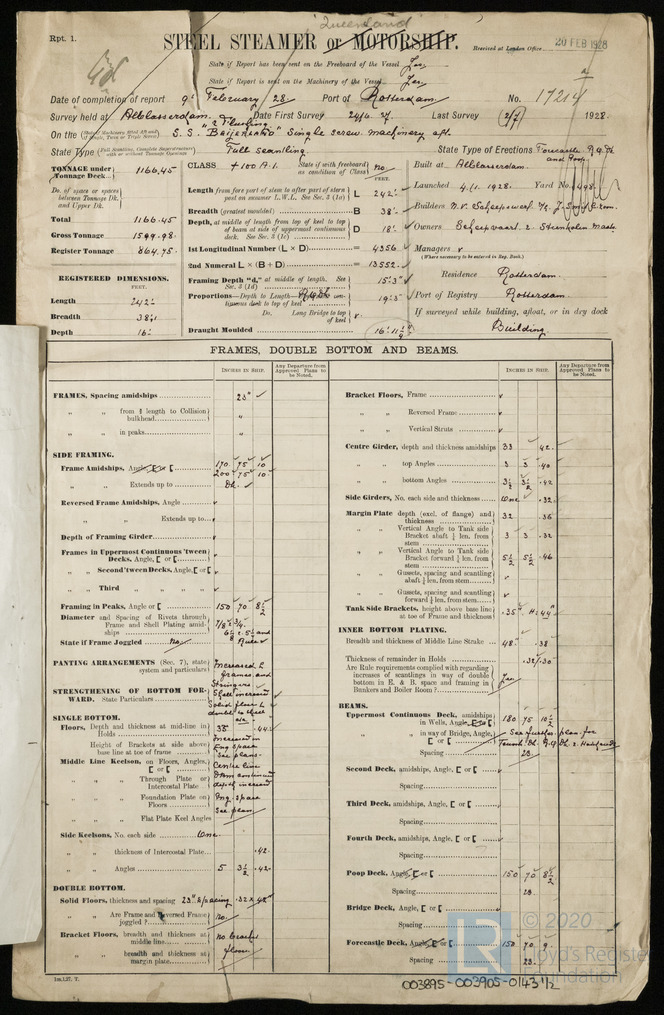 Rpt. 1.
"Zuiderland"
STEEL STEAMER or MOTORSHIP.
Received at London Office 20 FEB 1928
State if Report has been sent on the Freeboard of the Vessel Yes.
State if Report is sent on the Machinery of the Vessel Yes.
Date of completion of report 9th February /28 Port of Rotterdam No. 17214
Survey held at Alblasserdam. & Flushing Date First Survey Last Survey 1928
On the S.S. "Beijerland" Single screw. machinery aft.
State Type Full scantling State Type of Erections Forecastle, R.Q.Dk and Poop.
TONNAGE under Tonnage Deck 1166.45
Do. of space or spaces between Tonnage Dk. and Upper Dk.
Total 1166.45
Gross Tonnage
Register Tonnage 864.75
REGISTERED DIMENSIONS.
FEET.
Length 242
Breadth 38.1
Depth 16
CLASS +100 A.1. State if with freeboard as condition of Class No
FEET.
Length from fore part of stem to after part of stern post on summer L.W.L. See Sec. 3 (1a) L 242
Breadth (greatest moulded) B 38
Depth, at middle of length from top of keel to top of beam at side of uppermost continuous deck. See Sec. 3 (1c) D 18
1st Longitudinal Number (L × D) = 4356
2nd Numeral L × (B + D) = 13552
Framing Depth "d," at middle of length. See Sec. 3 (1d) 15.3
Proportions—Depth to Length—
Do. Long Bridge to top of keel
Draught Moulded 16'-11
Built at Alblasserdam.
Launched 4/1. 1928. Yard No. 498
Builders N.V. Scheepswerf v/h J. Smit Czoon.
Owners
Managers
(Where necessary to be entered in Reg. Book.)
Residence Rotterdam.
Port of Registry Rotterdam.
If surveyed while building, afloat, or in dry dock
Building.
FRAMES, DOUBLE BOTTOM AND BEAMS.
INCHES IN SHIP. Any Departure from Approved Plans to be Noted.
INCHES IN SHIP. Any Departure from Approved Plans to be Noted.
FRAMES, Spacing amidships 23"
" " from ⅗ length to Collision bulkhead "
" " in peaks "
SIDE FRAMING.
Frame Amidships, Angle, E or [ 170 75 10
200 75 10
" " Extends up to Dk.
Reversed Frame Amidships, Angle
" " Extends up to
Depth of Framing Girder
Frames in Uppermost Continuous 'tween Decks, Angle, [ or [
" " Second 'tween Decks, Angle, [ or [
" " Third " "
Framing in Peaks, Angle or [ 150 70 8½
Diameter and Spacing of Rivets through Frame and Shell Plating amidships 7/8 & 3/4
State if Frame Joggled No
PANTING ARRANGEMENTS (Sec. 7), state system and particulars Increased frames and Stringers
STRENGTHENING OF BOTTOM FORWARD. State Particulars Shell increased
SINGLE BOTTOM.
Floors, Depth and thickness at mid-line in Holds 38 .44
Height of Brackets at side above base line at toe of frame Increased in Eng. space See plans
Middle Line Keelson, on Floors, Angles, [ or [ Centre line
" " Through Plate or Intercostal Plate
" " Foundation Plate on Floors Eng. space See plan
" " Flat Plate Keel Angles
Side Keelsons, No. each side One
" " thickness of Intercostal Plate .42
" " Angles 5 3½ .42
DOUBLE BOTTOM.
Solid Floors, thickness and spacing 23" spacing .32
" " Are Frame and Reversed Frame joggled? No
Bracket Floors, breadth and thickness at middle line No bracket floors
" " breadth and thickness at margin plate
Bracket Floors, Frame
" " Reversed Frame
" " Vertical Struts
Centre Girder, depth and thickness amidships 33 .42
" " top Angles 3 3 .40
" " bottom Angles 3½ 3½ .42
Side Girders, No. each side and thickness One .32
Margin Plate depth (excl. of flange) and thickness 32 .36
" " Vertical Angle to Tank side Bracket abaft ¼ len. from stem 3 3 .32
" " Vertical Angle to Tank side Bracket forward ¼ len. from stem 5½ 5½ .46
" " Gussets, spacing and scantling abaft ¼ len. from stem
" " Gussets, spacing and scantling forward ¼ len. from stem
Tank Side Brackets, height above base line at toe of Frame and thickness .35" H=44"
INNER BOTTOM PLATING.
Breadth and thickness of Middle Line Strake 48" .38
Thickness of remainder in Holds .32/.30
Are Rule requirements complied with regarding increases of scantlings in way of double bottom in E. & B. space and framing in Bunkers and Boiler Room? Yes
BEAMS.
Uppermost Continuous Deck, amidships in Wells, Angle, [ or [ 180 75 10½
" " in way of Bridge, Angle, [ or [ See further plan for
Spacing 23
Second Deck, amidships, Angle, [ or [
Spacing
Third Deck, amidships, Angle, [ or [
Spacing
Fourth Deck, amidships, Angle, [ or [
Spacing
Poop Deck, Angle, [ or [ 150 70 8½
Spacing 23
Bridge Deck, Angle, [ or [
Spacing
Forecastle Deck, Angle, [ or [ 150 70 9
Spacing 23
© 2020
Lloyd's Register
Foundation
003895-003905-0143 1/2